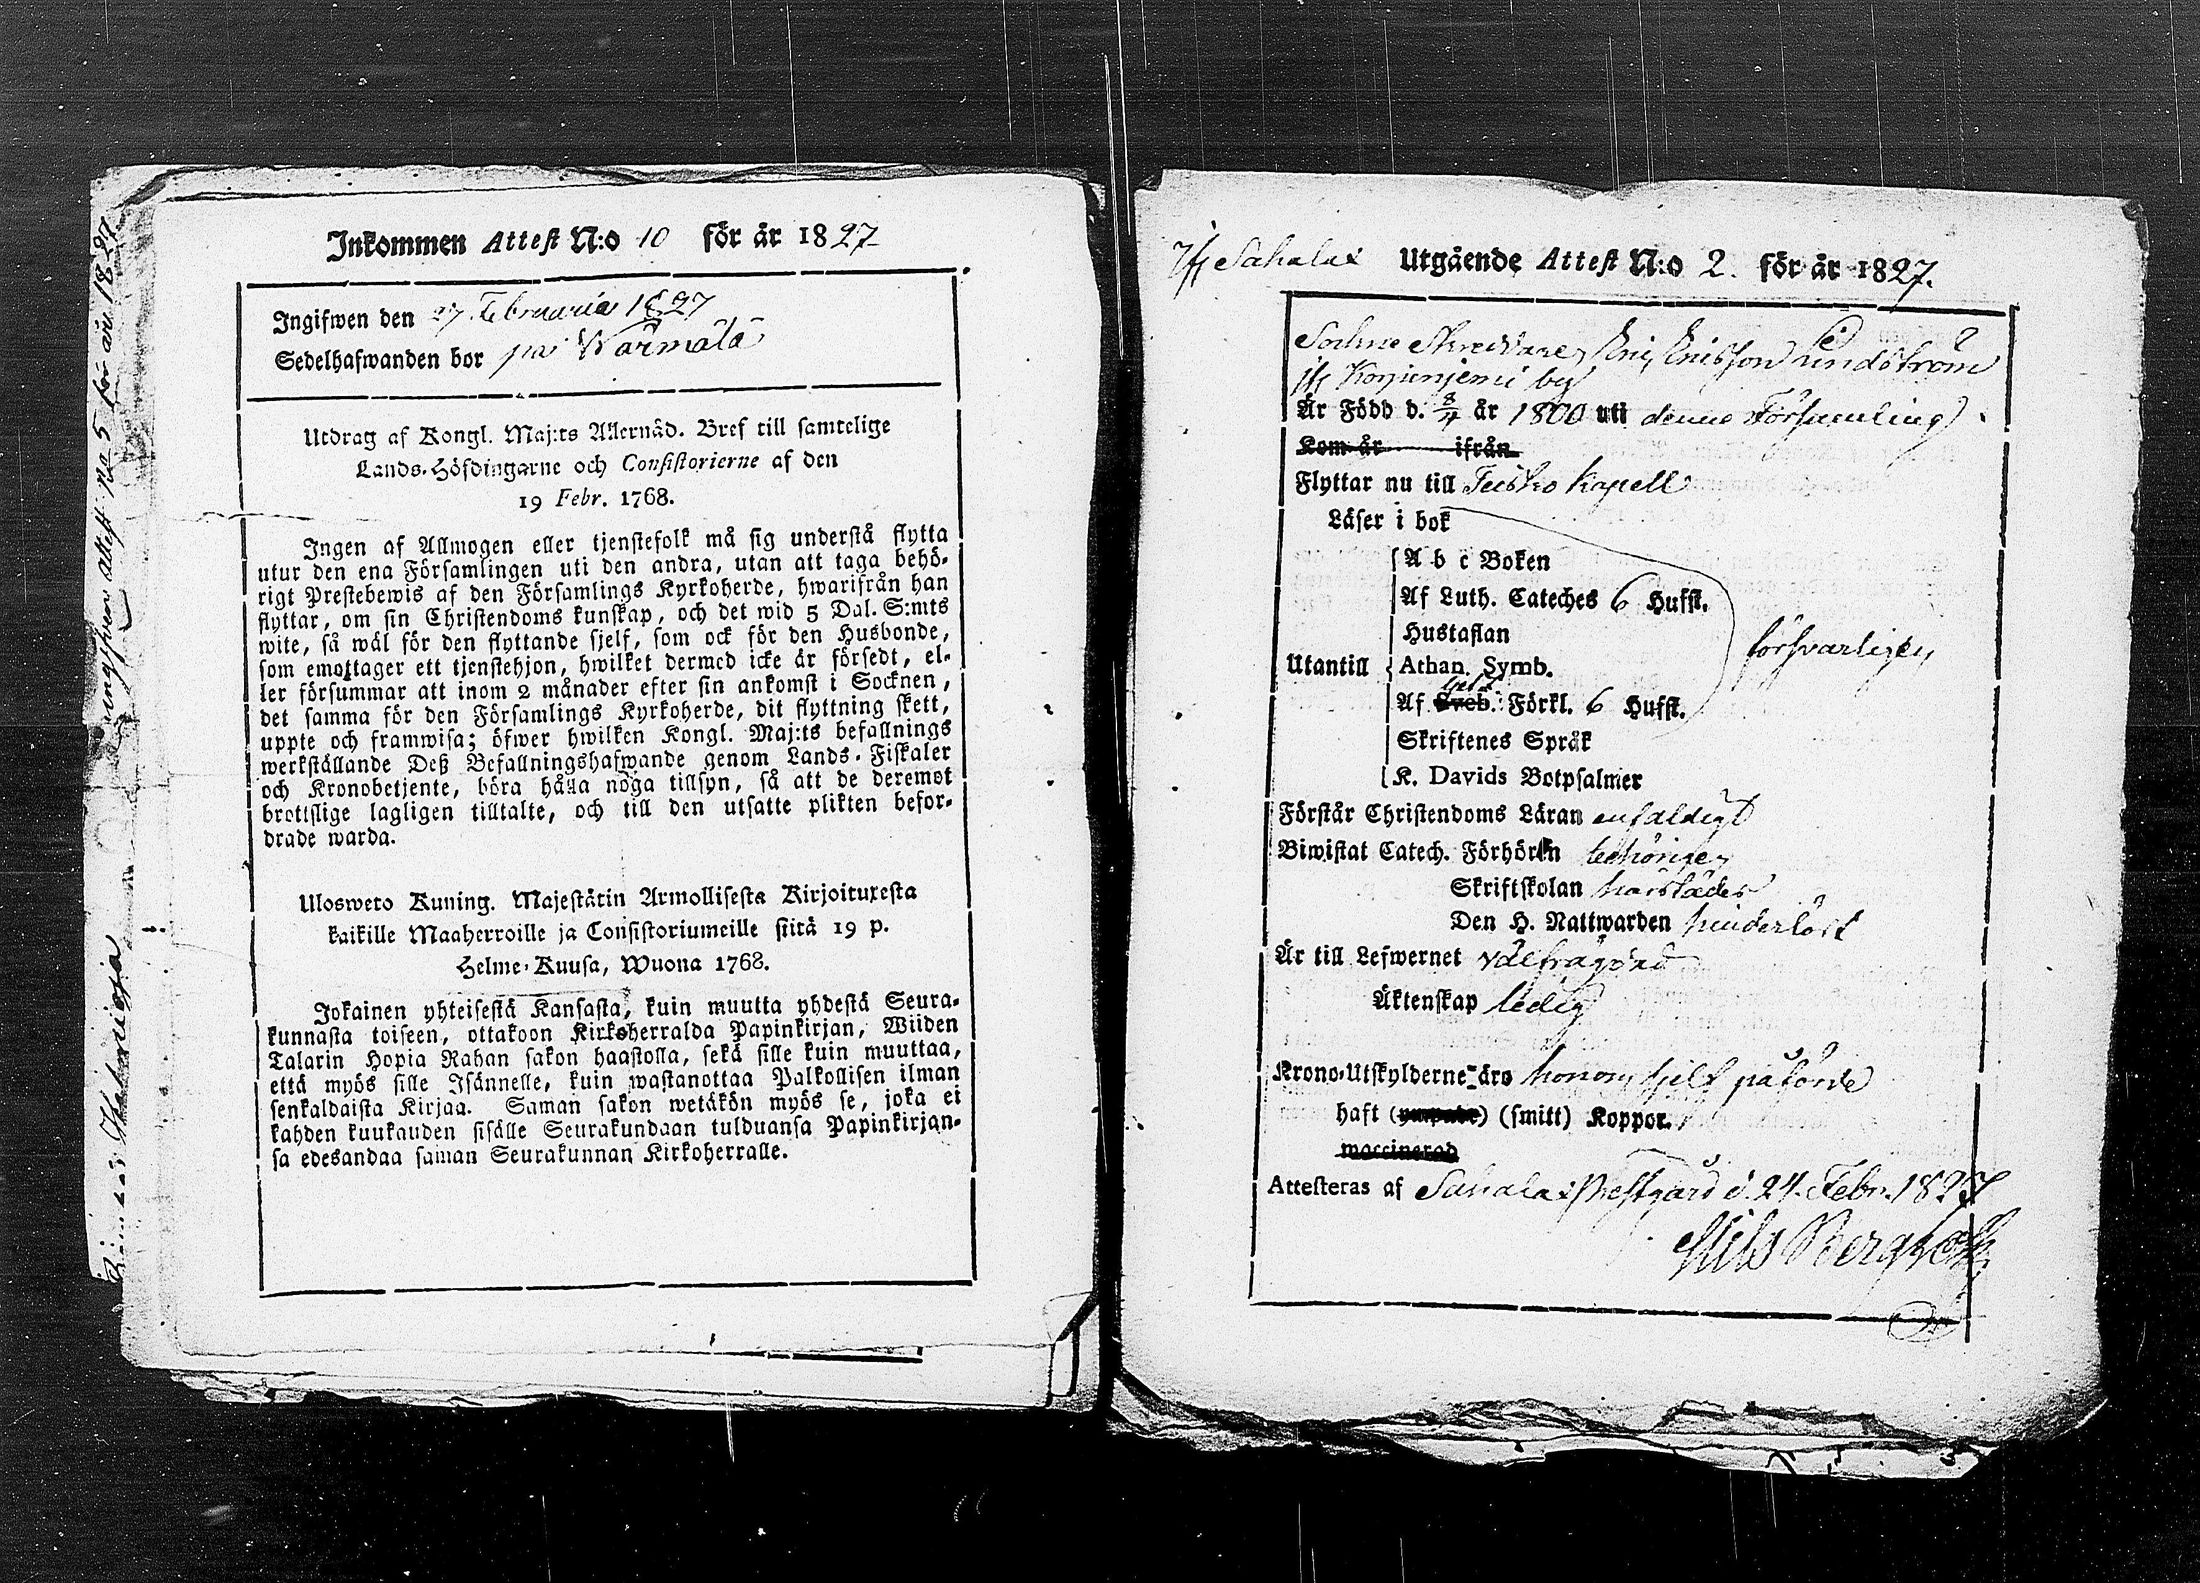 Inkommen Attest N:o 10 för år 1827
Ingifwen den 27 Februarii 1827
Sedelhafwanden bor på Wärmälä
Utdrag af Kongl. Maj:ts Allernåd. Bref till samtelige
Lands-Höfdingarne och Consistorierne af den
19 Febr. 1768.
Ingen af Allmogen eller tjenstefolk må sig understå flytta
utur den ena Församlingen uti den andra, utan att taga behö-
rigt Prestebewis af den Församlings Kyrkoherde, hwarifrån han
flyttar, om sin Christendoms kunskap, och det wid 5 Dal. S:mts
wite, så wäl för den flyttande sjelf, som ock för den Husbonde,
som emottager ett tjenstehjon, hwilket dermed icke är försedt, el-
ler försummar att inom 2 månader efter sin ankomst i Socknen,
det samma för den Församlings Kyrkoherde, dit flyttning skett,
uppte och framwisa; öfwer hwilken Kongl. Maj:ts befallnings
werkställande Deß Befallningshafwande genom Lands-Fiskaler
och Kronobetjente, böra hålla noga tillsyn, så att de deremot
brottslige lagligen tilltalte, och till den utsatte plikten befor-
drade warda.
Ulosweto Kuning. Majestätin Armollisesta Kirjoituxesta
kaikille Maaherroille ja Consistoriumeille siitä 19 p.
Helme-Kuusa, Wuona 1768.
Jokainen yhteisestä Kansasta, kuin muutta yhdestä Seura-
kunnasta toiseen, ottakoon Kirkoherralda Papinkirjan, Wiiden
Talarin Hopia Rahan sakon haastolla, sekä sille kuin muuttaa,
että myös sille Isännelle, kuin wastanottaa Palkollisen ilman
senkaldaista Kirjaa. Saman sakon wetäkön myös se, joka ei
kahden kuukauden sisälle Seurakundaan tulduansa Papinkirjan-
sa edesandaa saman Seurakunnan Kirkoherralle.
ingifven attest no 5 för år 1827
Ifr Sahalax Utgående Attest N:o 2. för år 1827.
Sockne Skreddare Eric Ericsson Lindström
ifr by
Är Född d. 8/4 år 1800 uti denne Församling
Kom år ifrån
Flyttar nu till Teisko Kapell
Läser i bok
A b c Boken
Af Luth. Cateches 6 Hufst.
Hustaflan
försvarligen
Utantill Athan. Symb.
Af Sveb. Förkl. 6 Hufst.
Skriftenes Språk
K. Davids Botpsalmer
Förstår Christendoms Läran enfaldigt
Biwistat Catech. Förhören behörigen
Skriftskolan härstädes
Den H. Nattwarden hinderlöst
Är till Lefwernet välfrägdad
Äktenskap ledig
Krono-Utskylderne äro honom sjelf påförde
haft (ympade) (smitt) Koppor.
waccinerad
Attesteras af Sahalax Prestgård d. 24. Febr. 1827
Nils Bergholk